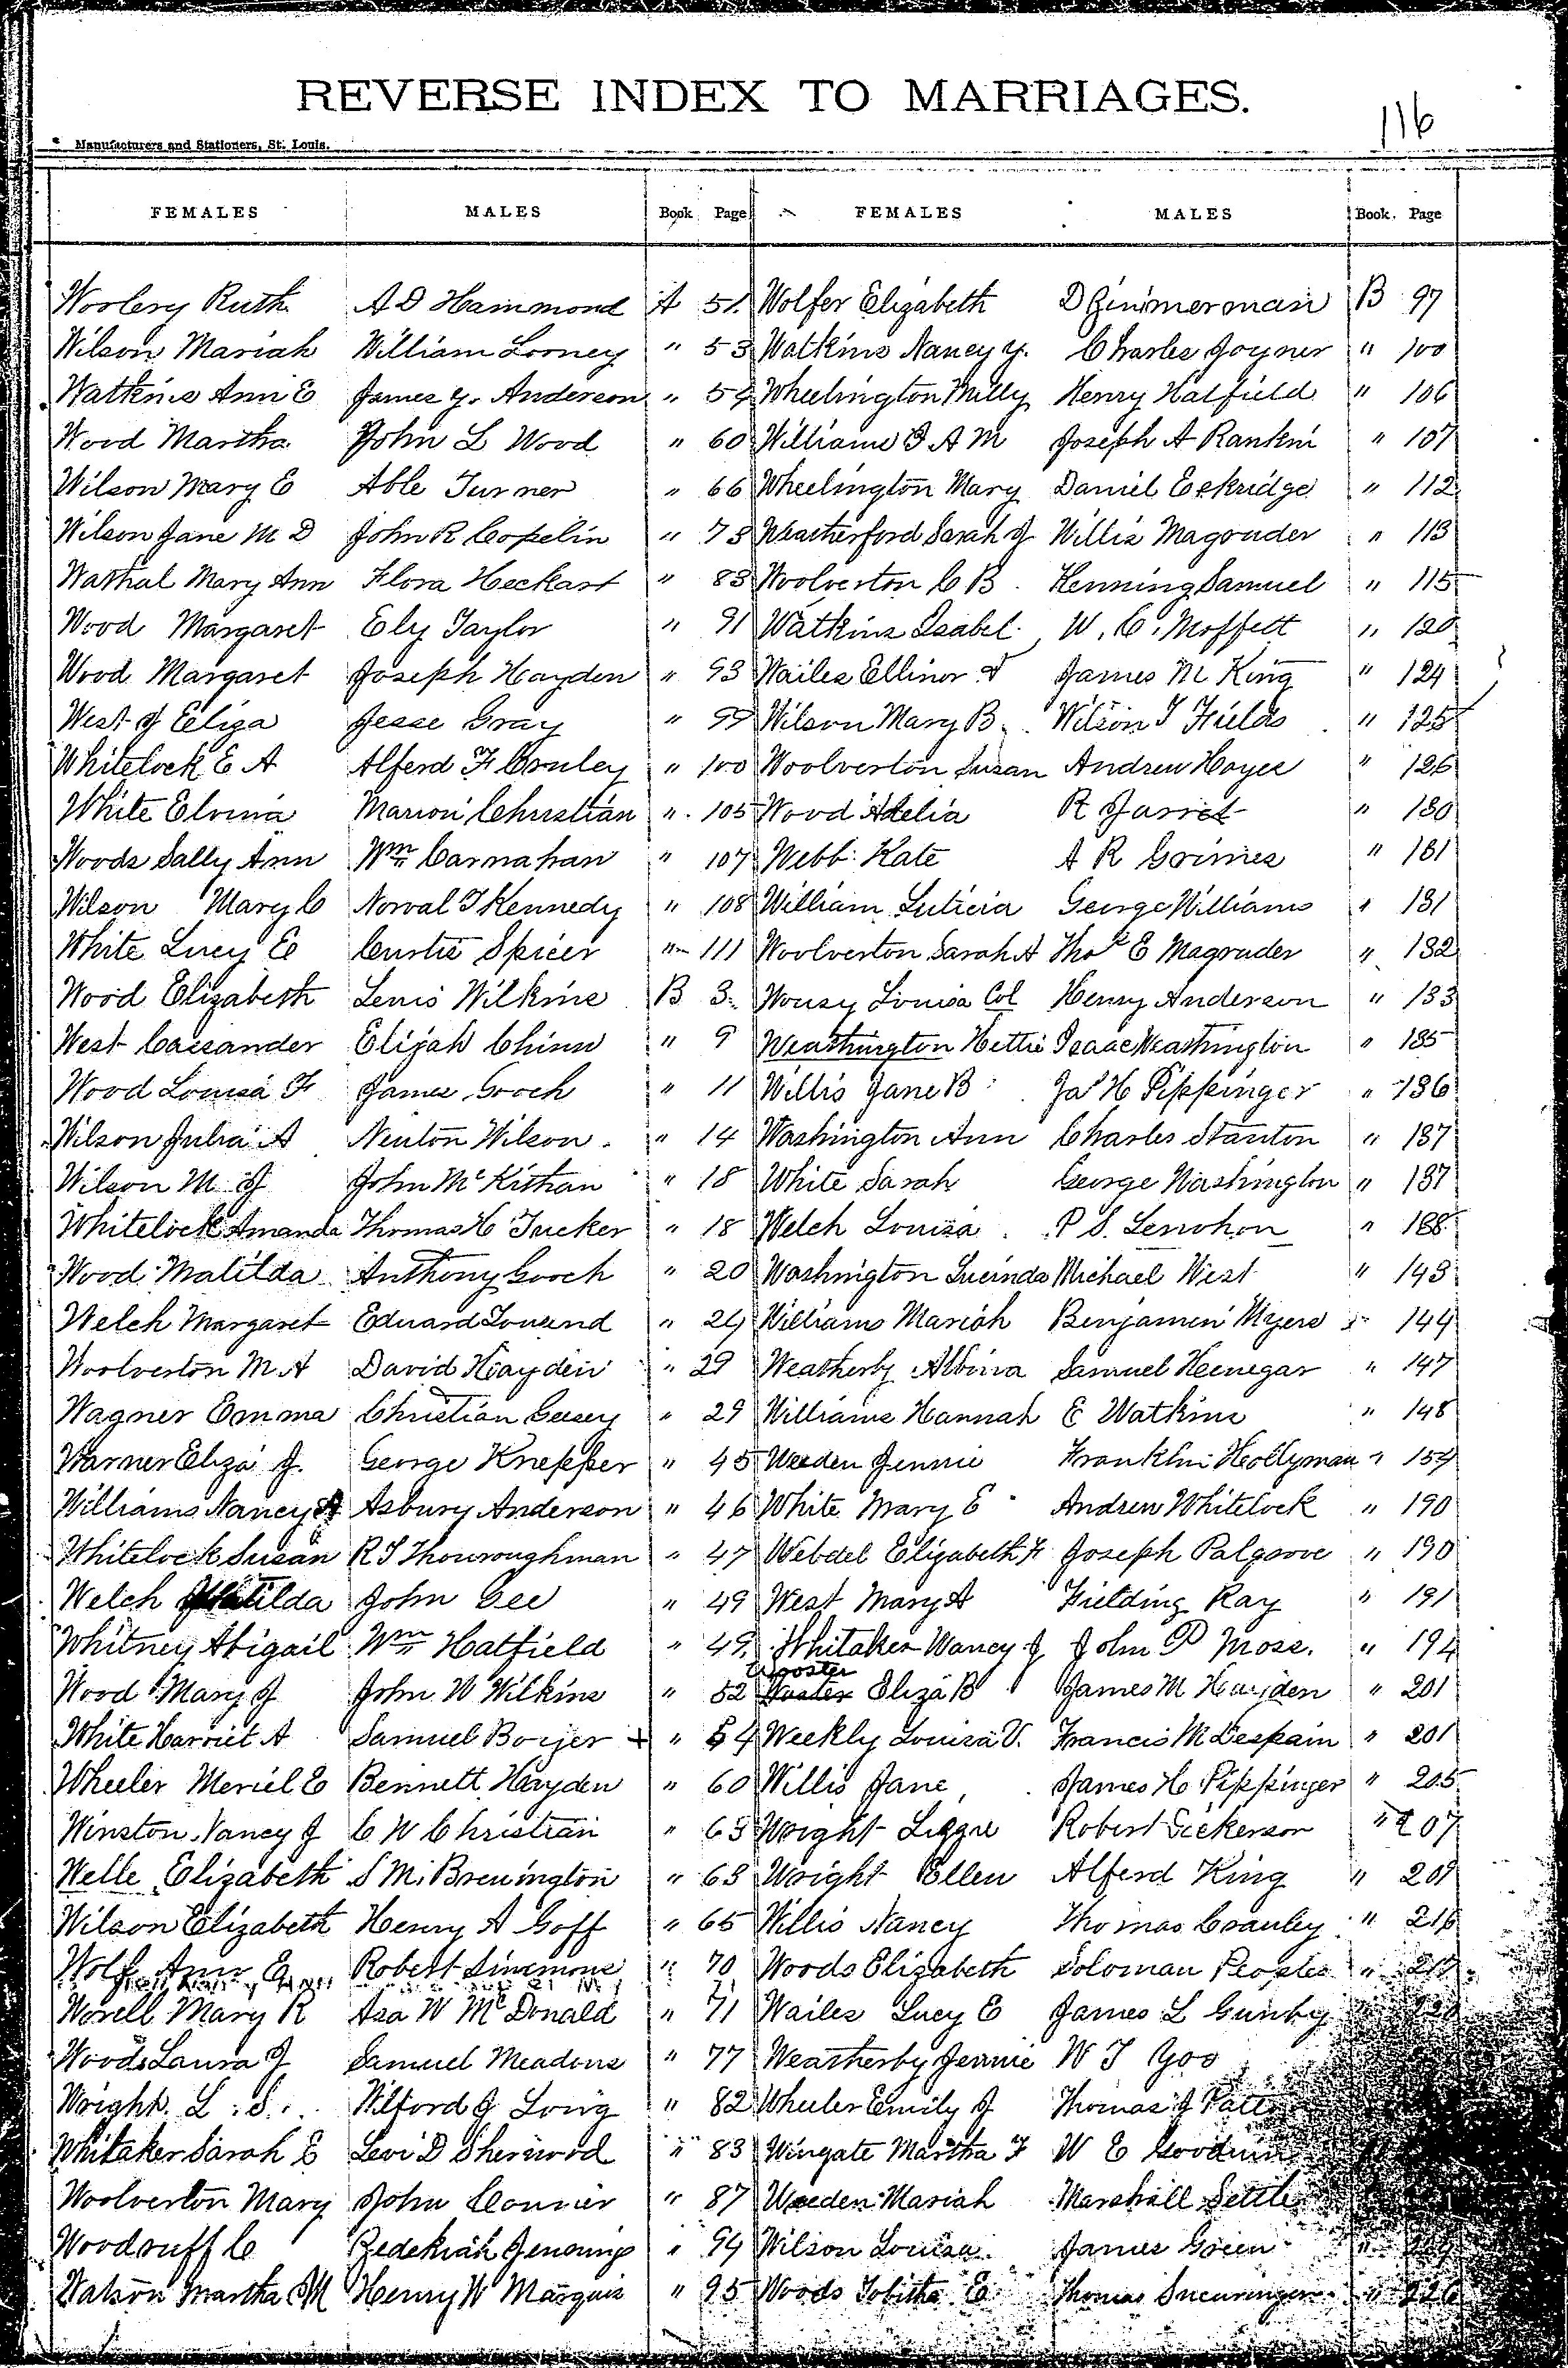 REVERSE INDEX TO MARRIAGES.
116
Manufacturers and Stationers, St. Louis.
FEMALES MALES Book Page FEMALES MALES Book. Page
Woolery Ruth A D Hammond A 51. Wolfer Elizabeth D Zimmerman B 97
Wilson Mariah William Looney " 53 Watkins Nancy Y. Charles Joyner " 100
Watkins Ann E James Y. Anderson " 54 Wheelington Milly Henry Hatfield " 106
Wood Martha John L Wood " 60 Williams J A M Joseph A Rankin " 107
Wilson Mary E Able Turner " 66 Wheelington Mary Daniel Eskridge " 112
Wilson Jane M D John R Copelin " 73 Weatherford Sarah J Willis Magruder " 113
Wathal Mary Ann Flora Heckart " 83 Woolverton C B Henning Samuel " 115
Wood Margaret Ely Taylor " 91 Watkins Isabel W. C. Moffett " 120
Wood Margaret Joseph Hayden " 93 Wailes Ellinor James M King " 124
West J Eliza Jesse Gray " 99 Wilson Mary B. Wilson T Fields " 125
Whitelock E A Alferd F Conley " 100 Woolverton Susan Andrew Hayes " 126
White Elvina Marion Christian " 105 Wood Adelia R Jarret " 130
Woods Sally Ann Wm Carnahan " 107 Webb Kate A R Grimes " 131
Wilson Mary C Norval T Kennedy " 108 William Luticia George Williams " 131
White Lucy E Curtis Spicer " 111 Woolverton Sarah A Thos E Magruder " 132
Wood Elizabeth Lewis Wilkins B 3 Wousy Louisa Col Henry Anderson " 133
West Cassander Elijah Chinn " 9 Weathington Hettie Isaac Weathington " 135
Wood Louisa F James Gooch " 11 Willis Jane B Jas H Pippinger " 136
Wilson Julia A Newton Wilson " 14 Washington Ann Charles Stanton " 137
Wilson M J John McKithan " 18 White Sarah George Washington " 137
Whitelock Amanda Thomas H Tucker " 18 Welch Louiza P S. Lenohon " 138
Wood Matilda Anthony Gooch " 20 Washington Lucinda Michael West " 143
Welch Margaret Edward Townsend " 24 Williams Mariah Benjamin Myers " 144
Woolverton M A David Hayden " 29 Weatherby Albina Samuel Heenegar " 147
Wagner Emma Christian Geisey " 29 Williams Hannah E Watkins " 148
Warner Eliza J. George Knepper " 45 Weeden Jennie Franklin Hollyman " 154
Williams Nancy A Asbury Anderson " 46 White Mary E Andrew Whitelock " 190
Whitelock Susan R T Thouroughman " 47 Webdel Elizabeth F Joseph Palgrove " 190
Welch Matilda John Gee " 49 West Mary A Fielding Ray " 191
Whitney Abigail Wm Hatfield " 49 Whitaker Nancy J John P Moss. " 194
Wood Mary J John W Wilkins " 52 Wooster Eliza B James M Hayden " 201
White Harriet A Samuel Boyer + " 54 Weekly Louisa V. Francis M Despain " 201
Wheeler Meriel E Bennett Hayden " 60 Willis Jane James H Pippinger " 205
Winston Nancy J C W Christian " 63 Wright Lizzie Robert Dickerson " 207
Welle Elizabeth S M. Brewington " 63 Wright Ellen Alferd King "
Wilson Elizabeth Henry A Goff " 65 Willis Nancy Thomas Cranley " 216
Wolf Ann E Robert Simmons " 70 Woods Elizabeth Soloman Peoples "
Worell Mary R Asa W McDonald " 71 Wailes Lucy E James L Gunby
Woods Laura J Samuel Meadows " 77 Weatherby Jennie W T Yoo
Wright L. S. Wilford J Long " 82 Wheeler Emily J Thomas J
Whitaker Sarah E Levi D Sherwood " 83 Wingate Martha F W E Goodwin
Woolverton Mary John Conner " 87 Weeden Mariah Marshall Settle
Woodruff C Zedekiah Jennings " 94 Wilson Louisa James Green "
Watson Martha M Henry W Marquis " 95 Woods Tobitha E Thomas Swearingen " 226